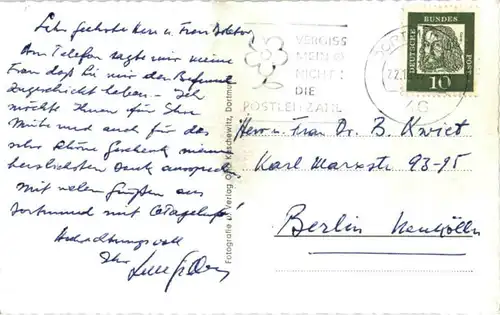 Sehr geehrter Herr u. Frau Doktor,
Am Telefon sagte mir meine
Frau daß Sie mir den Befund
zugeschickt haben – Ich
möchte Ihnen für Ihre
Mühe und auch für das
sehr schöne Geschenk meinen
herzlichsten Dank aussprechen.
Mit vielen Grüßen aus
Dortmund mit
Hochachtungsvoll
Ihr
Fotografie u. Verlag Dortmund
VERGISS
MEIN
NICHT:
DIE
POSTLEITZAHL
DEUTSCHE BUNDES POST
10
Herrn u. Frau Dr. B. Kwiet
Karl Marxstr 93-95
Berlin Neukölln